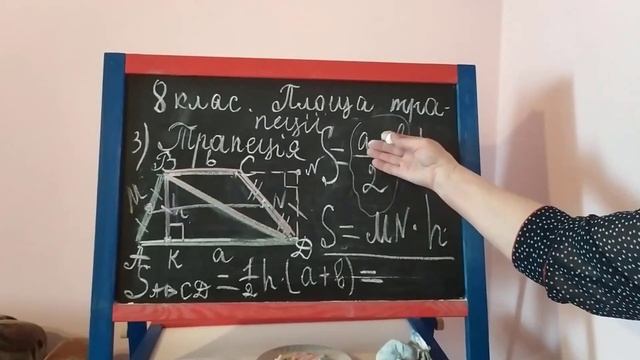 8 клас. Площа тра-
пеції
3) Трапеція
B b C N
M N
h
A K a D
S=(a
2
S=MN·h
S ABCD = 1/2 h (a+b) =